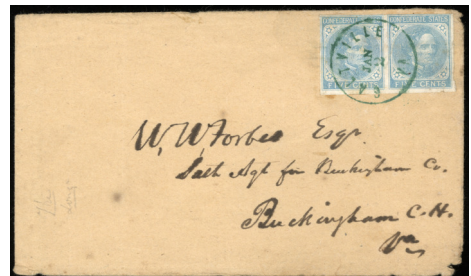 CONFEDERATE STATES CONFEDERATE STATES
FIVE CENTS FIVE CENTS
VILLE
JAN
VA
W, W Forbes Esqr.
Salt Agt for Buckingham Co.
Buckingham C.H.
Va